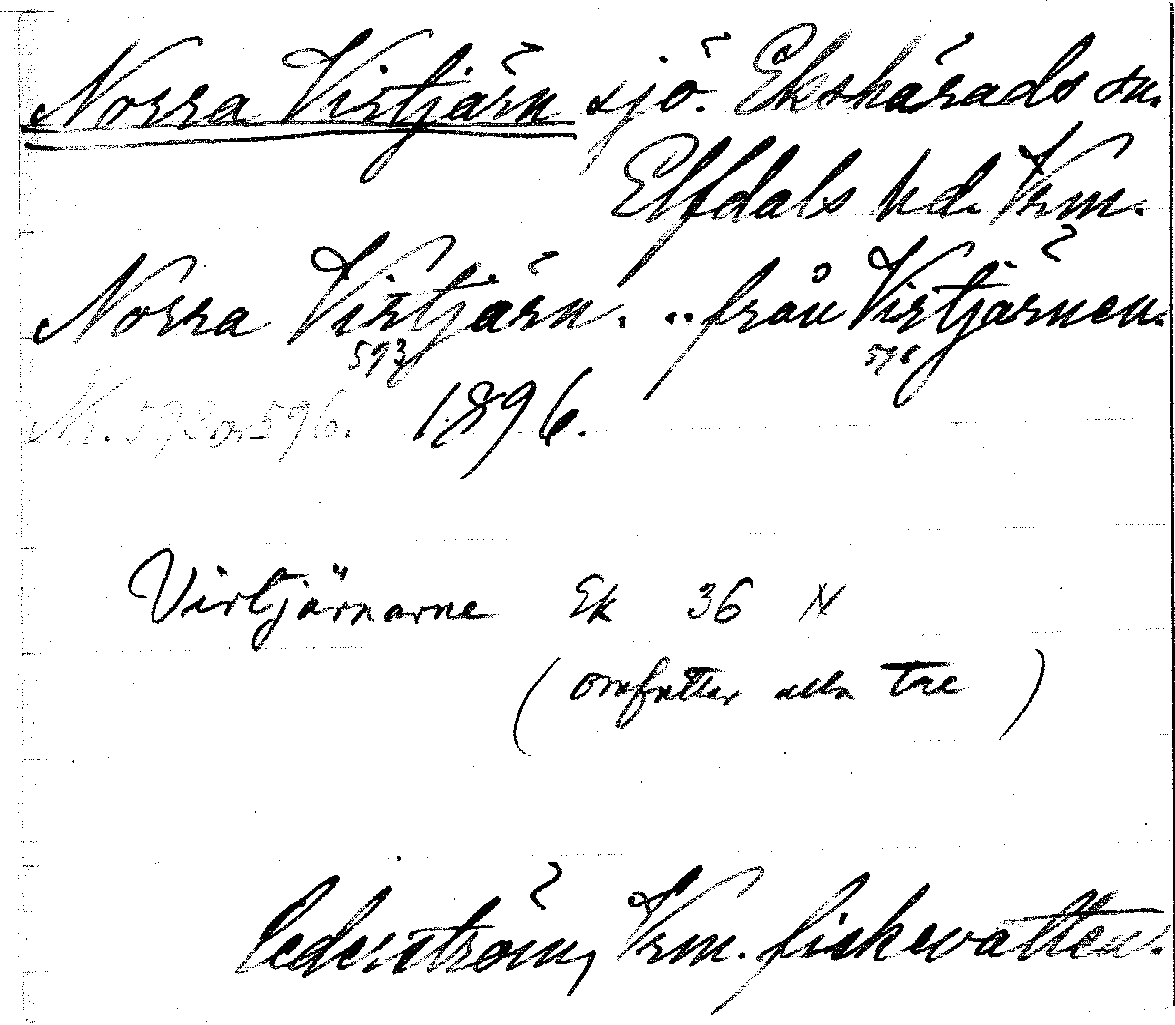 Norra Virtjärn sjö. Ekshärads sn.
Elfdals hd. Vrm.
Norra Virtjärn. .. från Virtjärnen.
593 596
N. 593 o. 596. 1896.
Virtjärnarne Ek 36 N
(omfattar alla tre)
Cederström, Vrm. fiskevatten.